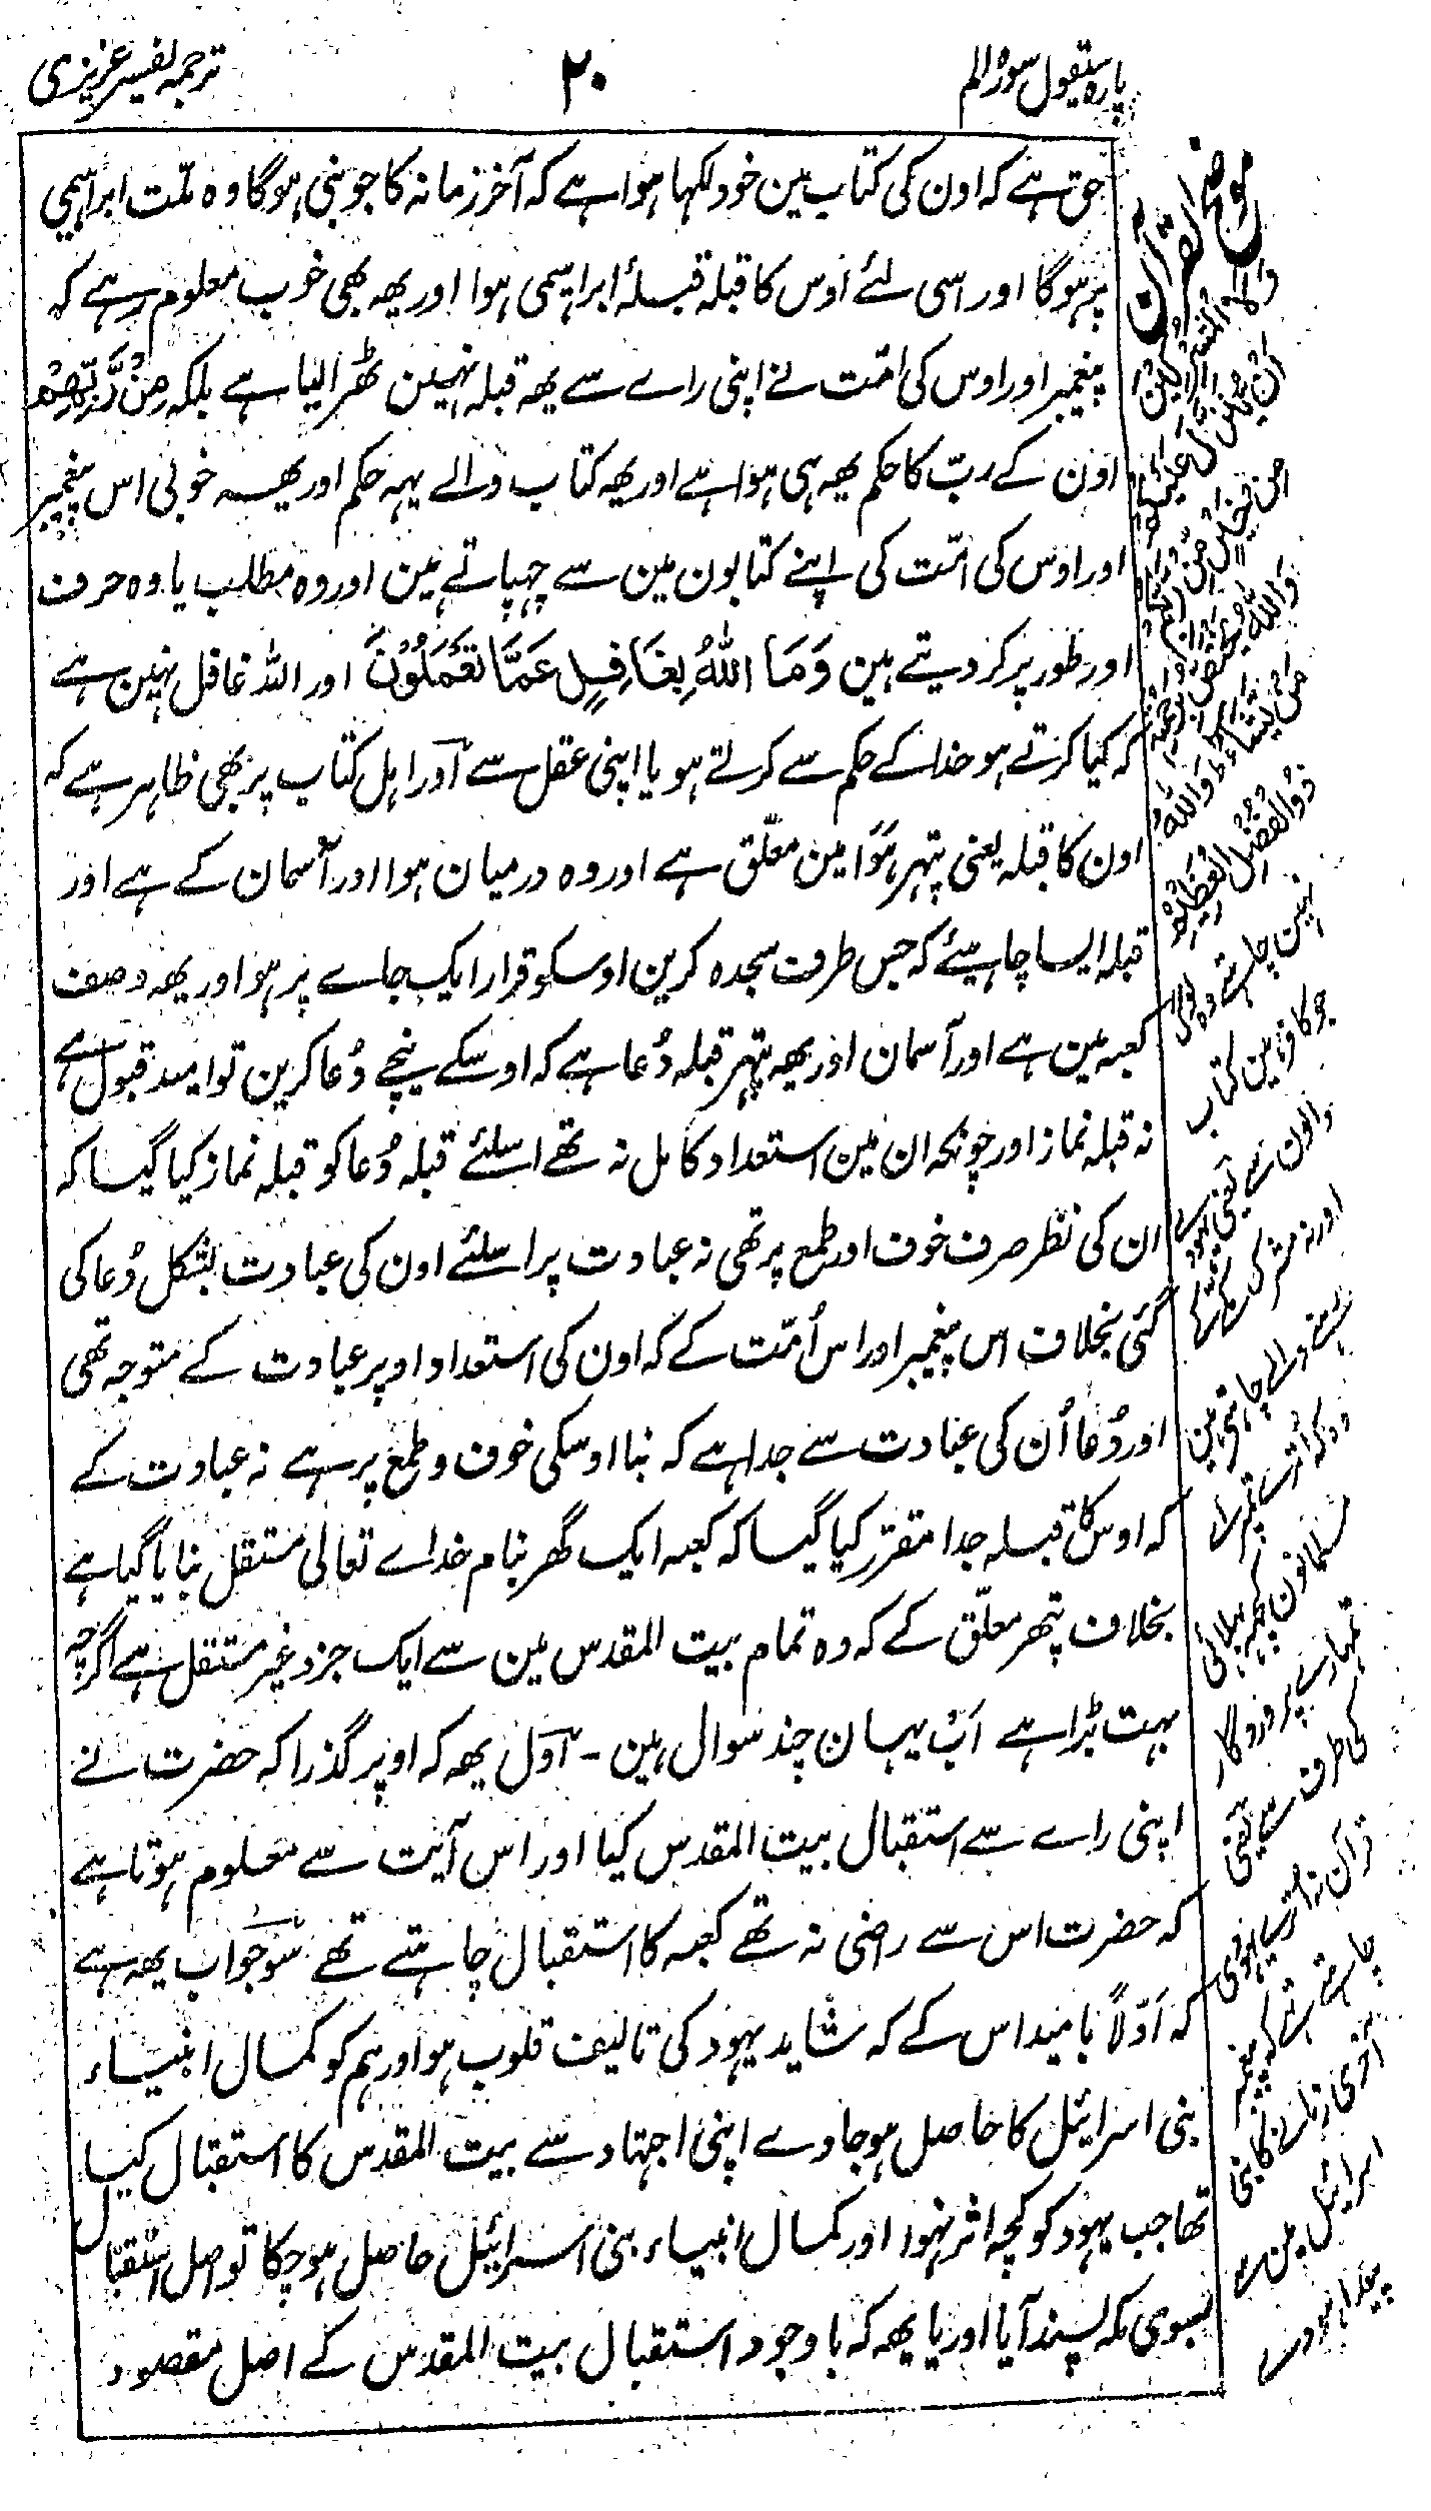 پارہ سیقول سورۂ الم
۲۰
ترجمہ تفسیر عزیزی
حق ہے کہ اون کی کتاب مین خود لکھا ہوا ہے کہ آخر زمانہ کا جو نبی ہوگا وہ ملّت ابراہیمی
پر ہوگا اور اسی لئے اوس کا قبلہ قبلۂ ابراہیمی ہوا اور یھہ بھی خوب معلوم رہے کہ
پیغمبر اور اوس کی امّت نے اپنی راے سے یھہ قبلہ نہین ٹھرا لیا ہے بلکہ مِنْ رَّبِّهِمْ
اون کے ربّ کا حکم یھہ ہی ہوا ہے اور یھہ کتاب والے یہہ حکم اور یھہ خوبی اس پیغمبر
اور اوس کی امّت کی اپنے کتابون مین سے چہپاتے ہین اور وہ مطلب یا وہ حرف
اور طور پر کر دیتے ہین وَمَا اللهُ بِغَافِلٍ عَمَّا تَعْمَلُوْنَ اور اللہ غافل نہین ہے
کہ کیا کرتے ہو خدا کے حکم سے کرتے ہو یا اپنی عقل سے اور اہل کتاب پر بھی ظاہر ہے کہ
اون کا قبلہ یعنی پتہر ہوا مین معلّق ہے اور وہ درمیان ہوا اور آسمان کے ہے اور
قبلہ ایسا چاہیئے کہ جس طرف سجدہ کرین اوسکو قرار ایک جاے پر ہو اور یھہ وصف
کعبہ مین ہے اور آسمان اور یھہ پتہر قبلہ دُعا ہے کہ اوسکے نیچے دُعا کرین تو امید قبول ہے
نہ قبلہ نماز اور چونکہ ان مین استعداد کامل نہ تھے اسلئے قبلہ دُعا کو قبلہ نماز کیا گیا کہ
ان کی نظر صرف خوف اور طمع پر تھی نہ عبادت پر اسلئے اون کی عبادت بشکل دُعا کی
گئی بخلاف اس پیغمبر اور اس اُمّت کے کہ اون کی استعداد اوپر عبادت کے متوجہ تھی
اور دُعا اُن کی عبادت سے جدا ہے کہ بنا اوسکی خوف و طمع پر ہے نہ عبادت کے
کہ اوس کا قبلہ جدا مقرّر کیا گیا کہ کعبہ ایک گھر بنام خداے تعالی مستقل بنایا گیا ہے
بخلاف پتھر معلّق کے کہ وہ تمام بیت المقدس مین سے ایک جزو غیر مستقل ہے اگرچہ
بہت بڑا ہے اب یہان چند سوال ہین - اوّل یھہ کہ اوپر گذرا کہ حضرت نے
اپنی راے سے استقبال بیت المقدس کیا اور اس آیت سے معلوم ہوتا ہے
کہ حضرت اس سے راضی نہ تھے کعبہ کا استقبال چاہتے تھے سو جواب یھہ ہے
کہ اَوّلاً بامید اس کے کہ شاید یہود کی تالیف قلوب ہو اور ہم کو کمال انبیاء
بنی اسرائیل کا حاصل ہو جاوے اپنی اجتہاد سے بیت المقدس کا استقبال کیا
تھا جب یہود کو کچھ اثر نہوا اور کمال انبیاء بنی اسرائیل حاصل ہو چکا تو اصل استقبال
بسوی مکہ پسند آیا اور یا یھہ کہ باوجود استقبال بیت المقدس کے اصل مقصود
موضح القرآن
وَلَا الْمُشْرِكِيْنَ
اَنْ يُّنَزَّلَ عَلَيْكُمْ
مِّنْ خَيْرٍ مِّنْ رَّبِّكُمْ
وَاللهُ يَخْتَصُّ بِرَحْمَتِهٖ
مَنْ يَّشَآءُ ط وَاللهُ
ذُوالْفَضْلِ الْعَظِيْمِ
نہین چاہتے وہ لوگ
جو کافر ہین کتاب
والون سے یعنی یہود
اور نہ مشرک مکے کے
چاہتے ہین
مسلمانون پر کچھ بھلائی
تمہارے پروردگار
کی طرف سے یعنی
چاہتے تھے کہ پیغمبر
آخری زمانہ کا بنی
اسرائیل مین سے
پیدا ہووے